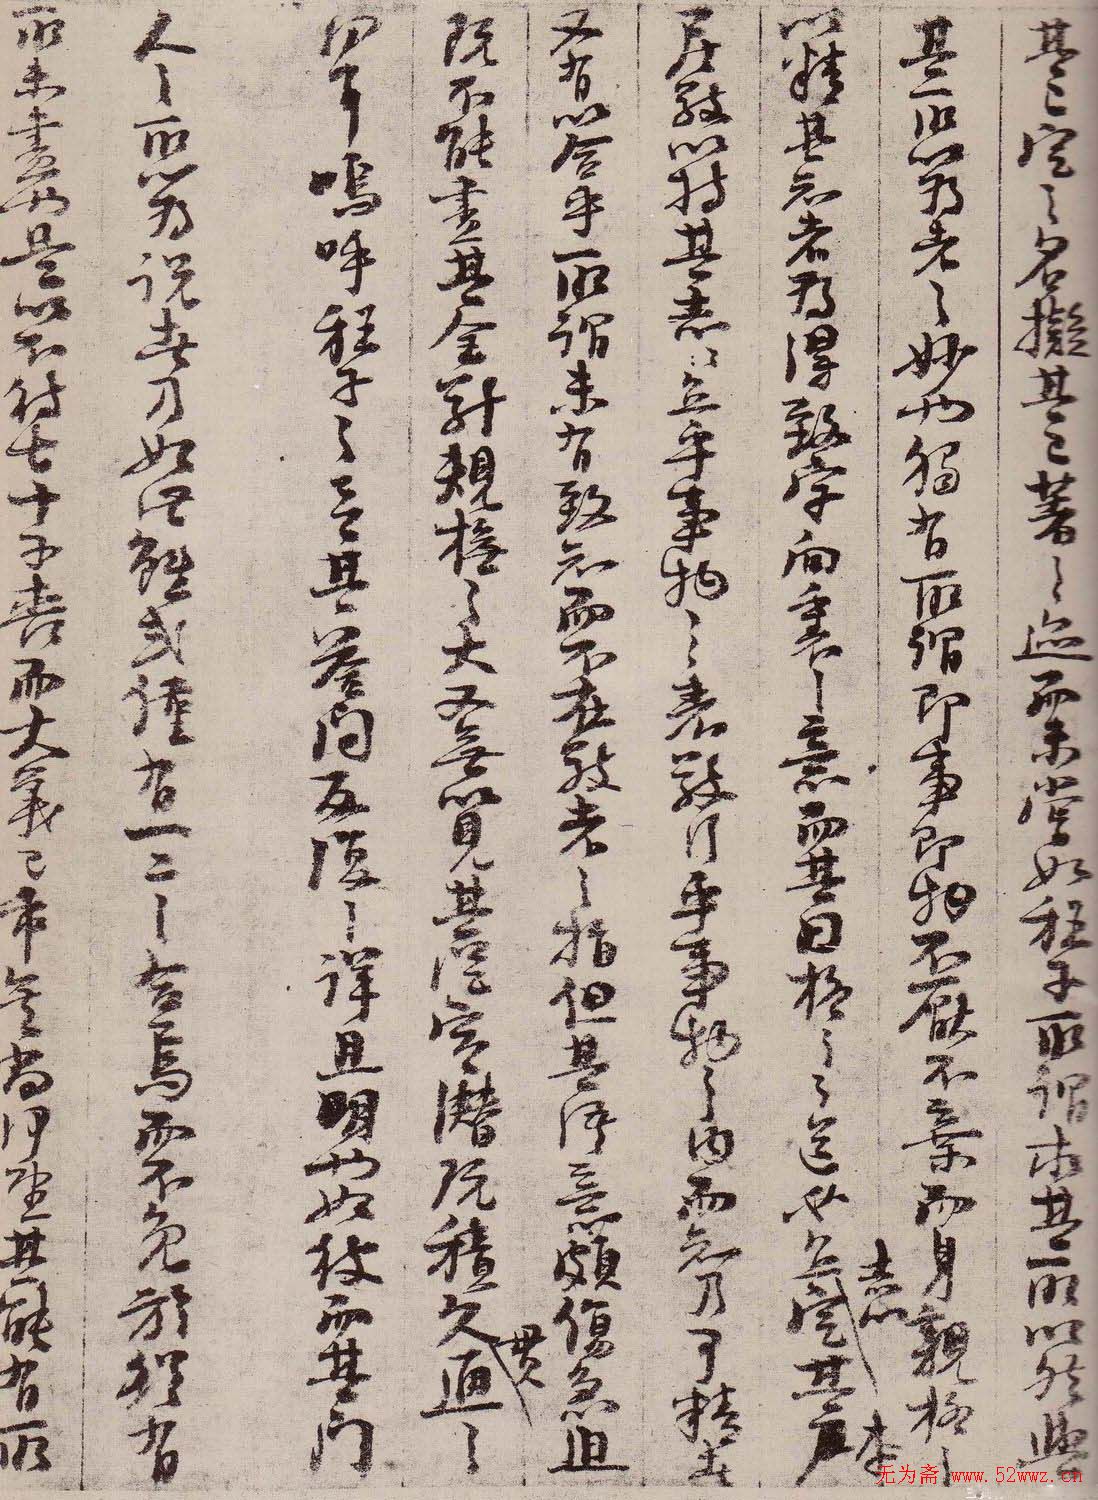 其已定之名擬其已著之迹而未嘗如程子所謂求其所以然與
其所以為者之妙也獨有所謂即事即物不厭不棄而身親格之
以精其知者為得致字向裏之意而其曰格之之道必立志定其本
居敬以持其志志立乎事物之表敬行乎事物之內而知乃可精者
又有以合乎所謂未有致知而不在敬者之指但其語意頗傷急迫
既不能盡其全體規模之大又無以見其從容潛玩積久貫通之
功耳嗚呼程子之言其答問反復之詳且明也如彼而其門
人之所以為說者乃如此雖或僅有一二之合焉而不免於猶有
所未盡也是以不待七十子喪而大義已乖矣尚何望其能有所
无为斋 www.52wwz.cn